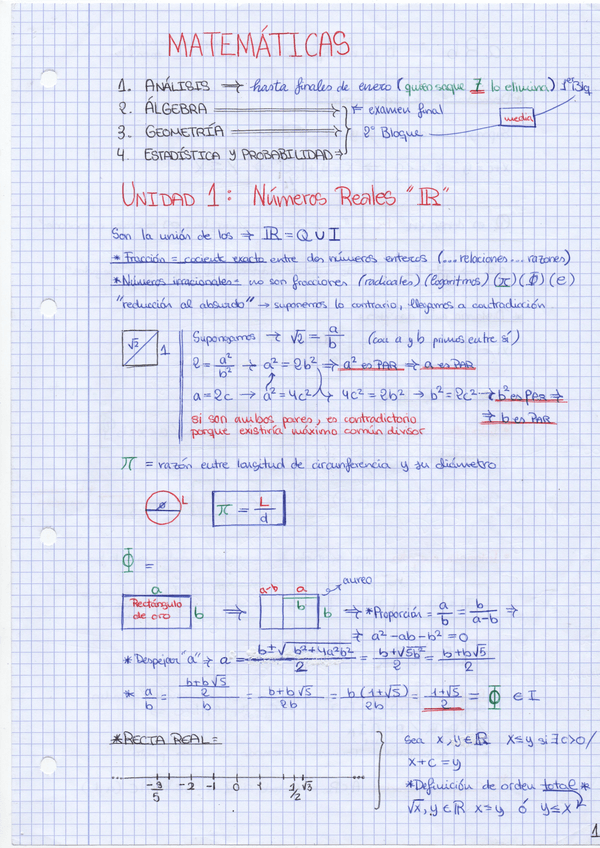 MATEMÁTICAS
1. ANÁLISIS → hasta finales de enero (quien saque 7 lo elimina) 1er Blq
2. ÁLGEBRA → * examen final
3. GEOMETRÍA → 2º Bloque media
4. ESTADÍSTICA Y PROBABILIDAD →
UNIDAD 1: Números Reales "ℝ"
Son la unión de los → ℝ = Q ∪ I
* Fracción = cociente exacto entre dos números enteros (... relaciones... razones)
* Números irracionales = no son fracciones (radicales) (logaritmos) (π) (Φ) (e)
"reducción al absurdo" → suponemos lo contrario, llegamos a contradicción
√2 1
Supongamos → √2 = a/b (con a y b primos entre sí)
2 = a²/b² → a² = 2b² ⇒ a² es PAR ⇒ a es PAR
a = 2c → a² = 4c² → 4c² = 2b² → b² = 2c² → b² es PAR ⇒
⇒ b es PAR
si son ambos pares, es contradictorio
porque existiría máximo común divisor
π = razón entre longitud de circunferencia y su diámetro
L
π = L/d
Φ =
a a-b a aureo
Rectángulo de oro b ⇒ b b ⇒ * Proporción = a/b = b/a-b ⇒
⇒ a² - ab - b² = 0
* Despejar "a" → a = b±√b²+4a²b²/2 = b+√5b²/2 = b+b√5/2
* a/b = b+b√5/2/b = b+b√5/2b = b(1+√5)/2b = 1+√5/2 = Φ ∈ I
* RECTA REAL =
-9/5 -2 -1 0 1 1/2 √3
Sea x, y ∈ ℝ x ≤ y si ∃ c > 0 /
x + c = y
* Definición de orden total *
√x, y ∈ ℝ x = y ó y ≤ x
1